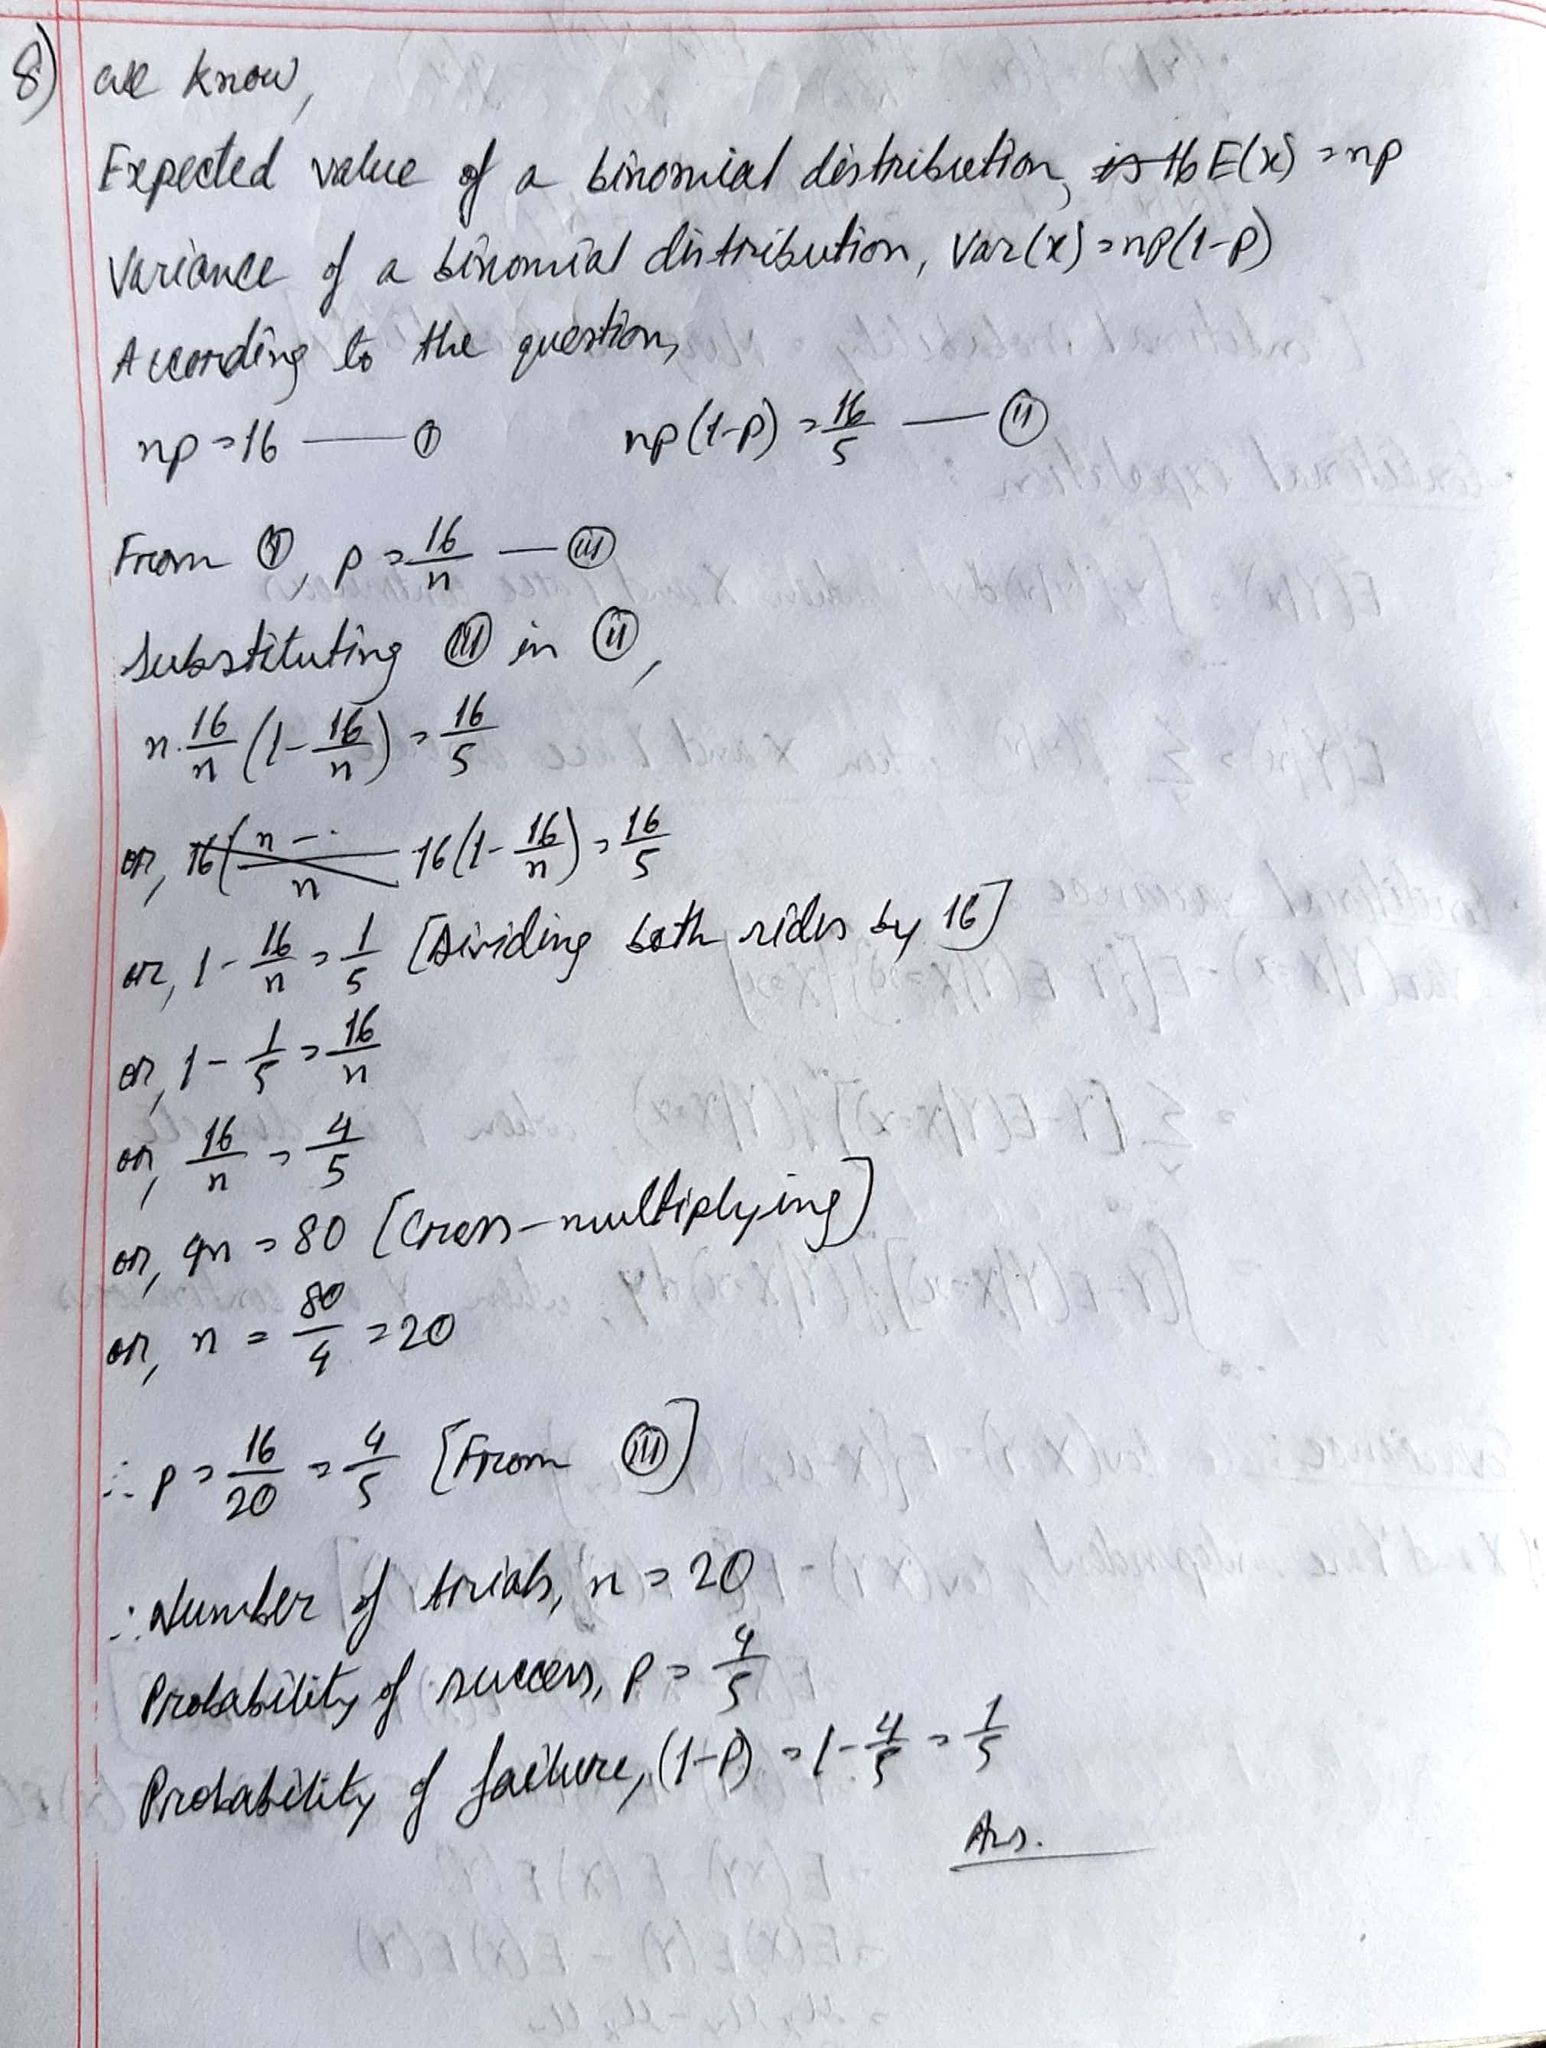 8) we know,
Expected value of a binomial distribution, is 16 E(x) = np
Variance of a binomial distribution, Var(x) = np(1-p)
According to the question,
np = 16 — (i) np(1-p) = 16/5 — (ii)
From (i), p = 16/n — (iii)
Substituting (iii) in (ii),
n. 16/n (1 - 16/n) = 16/5
or, 16(n - / n 16(1 - 16/n) = 16/5
or, 1 - 16/n = 1/5 [Dividing both sides by 16]
or, 1 - 1/5 = 16/n
or, 16/n = 4/5
or, 4n = 80 [Cross-multiplying]
or, n = 80/4 = 20
∴ p = 16/20 = 4/5 [From (iii)]
∴ Number of trials, n = 20
Probability of success, p = 4/5
Probability of failure, (1-p) = 1 - 4/5 = 1/5
Ans.